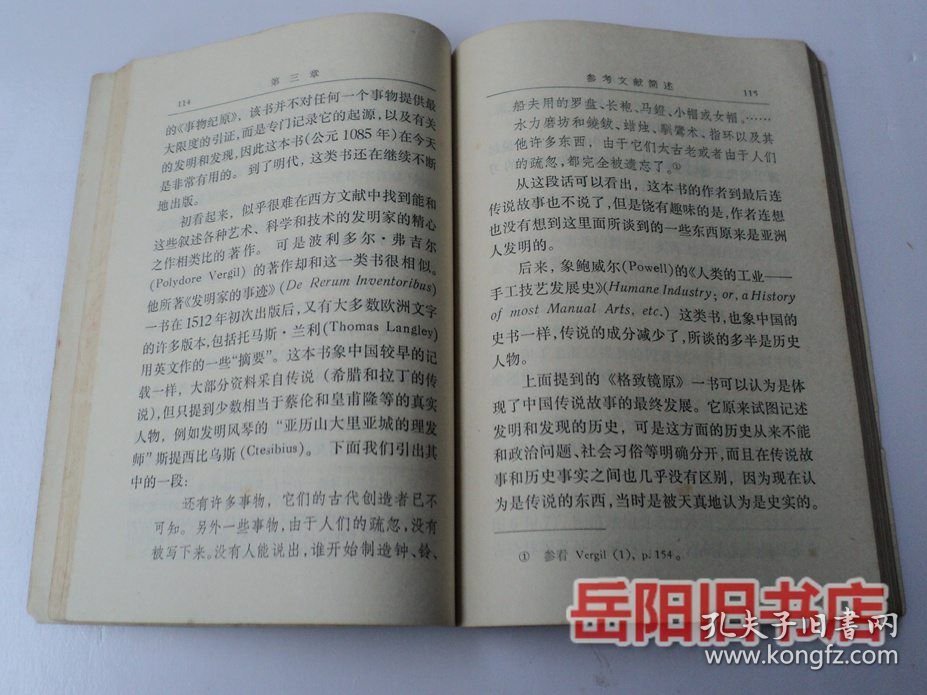 第三章
114
的《事物纪原》，该书并不对任何一个事物提供最
大限度的引证，而是专门记录它的起源，以及有关
的发明和发现，因此这本书（公元 1085 年）在今天
是非常有用的。 到了明代，这类书还在继续不断
地出版。
初看起来，似乎很难在西方文献中找到能和
这些叙述各种艺术、科学和技术的发明家的精心
之作相类比的著作。 可是波利多尔·弗吉尔
(Polydore Vergil) 的著作却和这一类书很相似。
他所著《发明家的事迹》(De Rerum Inventoribus)
一书在1512年初次出版后，又有大多数欧洲文字
的许多版本，包括托马斯·兰利(Thomas Langley)
用英文作的一些“摘要”。 这本书象中国较早的记
载一样，大部分资料采自传说（希腊和拉丁的传
说），但只提到少数相当于蔡伦和皇甫隆等的真实
人物，例如发明风琴的“亚历山大里亚城的理发
师”斯提西比乌斯 (Ctesibius)。 下面我们引出其
中的一段：
还有许多事物，它们的古代创造者已不
可知。另外一些事物，由于人们的疏忽，没有
被写下来。没有人能说出，谁开始制造钟、铃、
参考文献简述
115
船夫用的罗盘、长袍、马镫、小帽或女帽。……
水力磨坊和铙钹、蜡烛、驯鹭术、指环以及其
他许多东西，由于它们太古老或者由于人们
的疏忽，都完全被遗忘了。①
从这段话可以看出，这本书的作者到最后连
传说故事也不说了，但是饶有趣味的是，作者连想
也没有想到这里面所谈到的一些东西原来是亚洲
人发明的。
后来，象鲍威尔(Powell)的《人类的工业——
手工技艺发展史》(Humane Industry; or, a History
of most Manual Arts, etc.) 这类书，也象中国的
史书一样，传说的成分减少了，所谈的多半是历史
人物。
上面提到的《格致镜原》一书可以认为是体
现了中国传说故事的最终发展。它原来试图记述
发明和发现的历史，可是这方面的历史从来不能
和政治问题、社会习俗等明确分开，而且在传说故
事和历史事实之间也几乎没有区别，因为现在认
为是传说的东西，当时是被天真地认为是史实的。
① 参看 Vergil (1), p. 154。
岳阳旧书店
孔夫子旧书网
www.kongfz.com